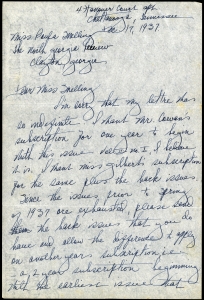 4 Hanover Court Apt
Chattanooga, Tennessee
17, 1937
Miss Paula Snelling
The North Georgia Review
Clayton, Georgia
Dear Miss Snelling
I'm sorry that my letter was
so indefinite. I want Mr. Cowan's
subscription for one year to begin
with this issue
it is. I want Miss Gilbert's subscription
for the same plus the back issues
Since the issues prior to Spring
of 1937 are exhausted, please send
the back issues that you do
have and allow the difference to apply
on another years subscription, i.e.
a 2 year subscription beginning
with the earliest issue that